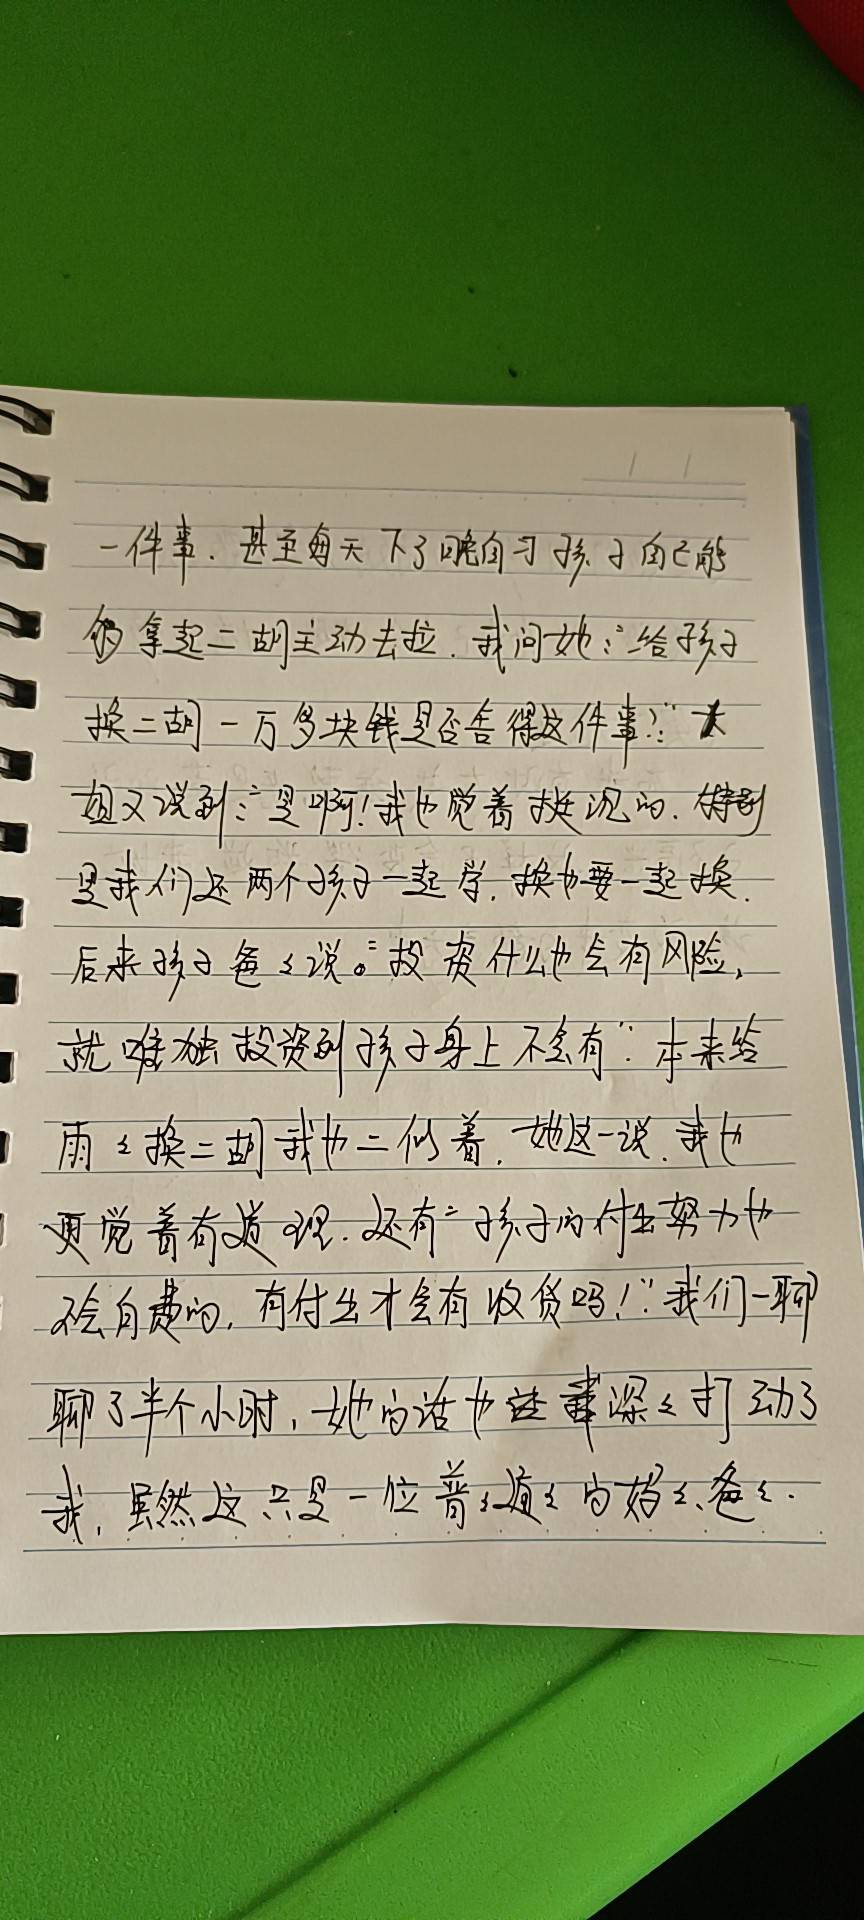 一件事．甚至每天下了晚自习孩子自己能
够拿起二胡主动去拉．我问她：“给孩子
换二胡一万多块钱是否舍得这件事?”大
姐又说到：“是啊!我也觉着挺沉的．特别
是我们还两个孩子一起学．换也要一起换．
后来孩子爸々说。“投资什么也会有风险，
就唯独投资到孩子身上不会有”．本来给
雨々换二胡我也二似着，她这一说．我也
更觉着有道理．还有“孩子的付出努力也
不会自费的，有付出才会有收货吗!”我们一聊
聊了半个小时，她的话也 深々打动了
我，虽然这只是一位普々通々的妈々、爸々．